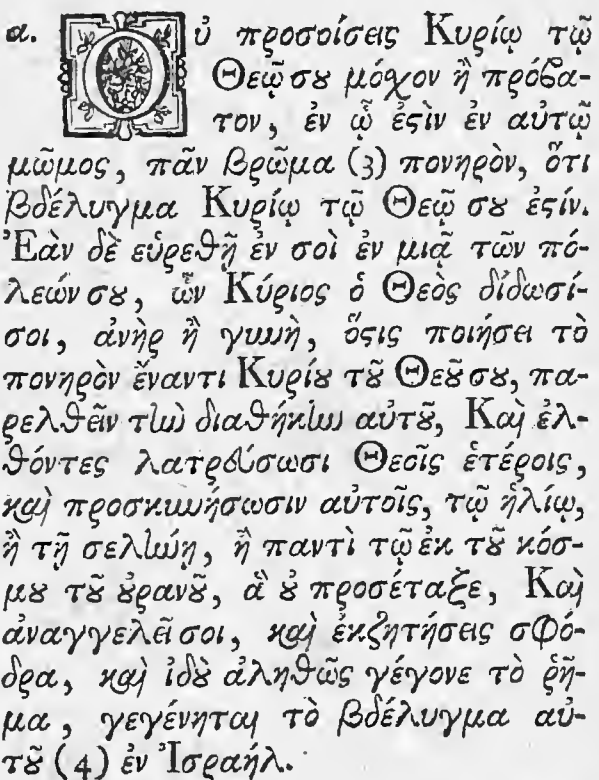 α. Οὐ προσοίσεις Κυρίῳ τῷ
Θεῷ σȣ μόχον ἢ πρόβα-
τον, ἐν ᾧ ἐϛὶν ἐν αὐτῷ
μῶμος, πᾶν βρῶμα (3) πονηρὸν, ὅτι
βδέλυγμα Κυρίῳ τῷ Θεῷ σȣ ἐϛίν.
Ἐὰν δὲ εὑρεθῇ ἐν σοὶ ἐν μιᾷ τῶν πό-
λεών σȣ, ὧν Κύριος ὁ Θεὸς δίδωσί-
σοι, ἀνὴρ ἢ γυνὴ, ὅϛις ποιήσει τὸ
πονηρὸν ἔναντι Κυρίȣ τȣ͂ Θεȣ͂ σȣ, πα-
ρελθεῖν τὴν διαθήκην αὐτȣ͂, Καὶ ἐλ-
θόντες λατρεύσωσι Θεοῖς ἑτέροις,
καὶ προσκυνήσωσιν αὐτοῖς, τῷ ἡλίῳ,
ἢ τῇ σελήνῃ, ἢ παντὶ τῷ ἐκ τȣ͂ κόσ-
μȣ τȣ͂ ȣ̓ρανȣ͂, ἃ ȣ̓ προσέταξε, Καὶ
ἀναγγελεῖ σοι, καὶ ἐκζητήσεις σφό-
δρα, καὶ ἰδȣ̀ ἀληθῶς γέγονε τὸ ῥῆ-
μα, γεγένηται τὸ βδέλυγμα αὐ-
τȣ͂ (4) ἐν Ἰσραήλ.